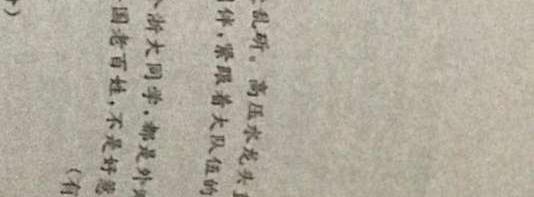 乱斫。高压水龙头
伴，紧跟着大队伍的
浙大同学，都是外
国老百姓，不是好惹
（有
）